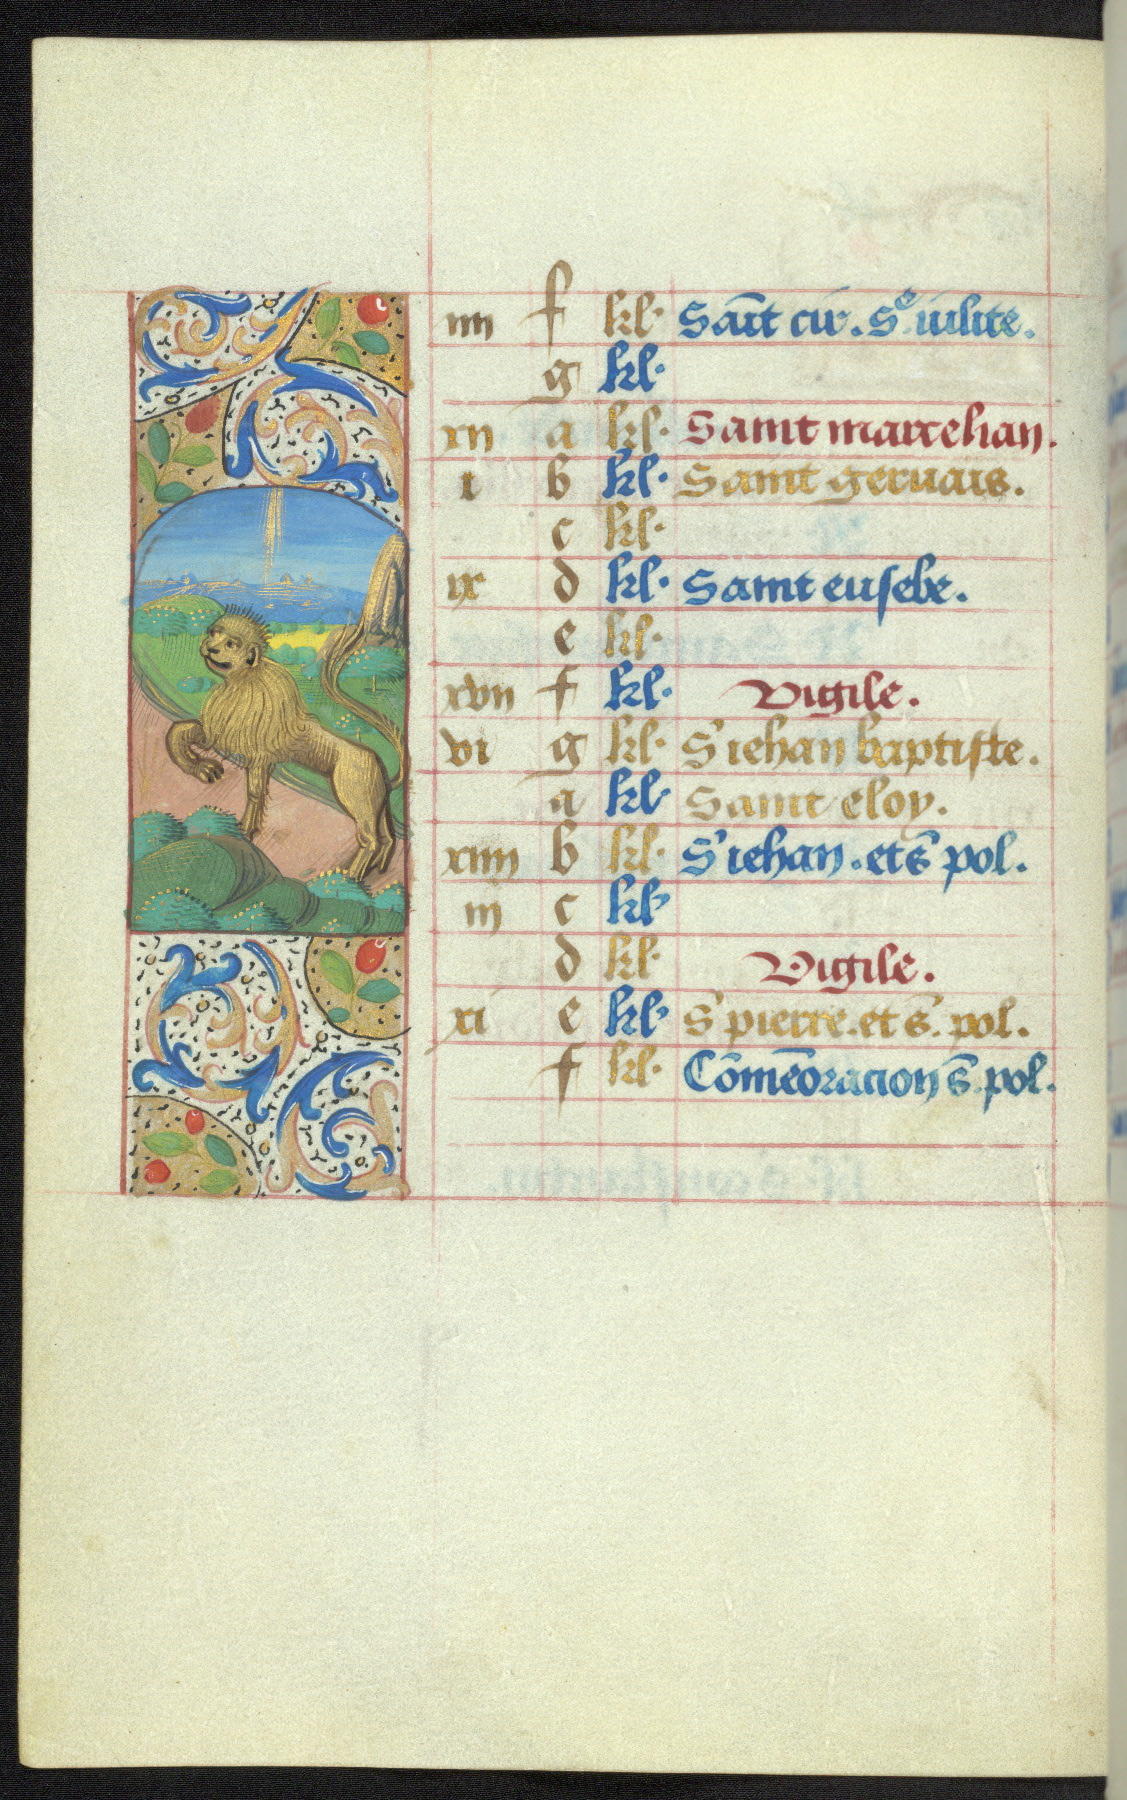 iiii f kl. Saīt cir. Sᵉ iulite.
g kl.
xii a kl. Saint marcelian.
i b kl. Saint geruais.
c kl.
ix d kl. Saint eusebe.
e kl.
xvii f kl. Vigile.
vi g kl. S iehan baptiste.
a kl. Saint eloy.
xiiii b kl. S iehan. et s̄ pol.
iii c kl.
d kl. Vigile.
xi e kl. S pierre. et s. pol.
f kl. Cōmēoracion s̄. pol.